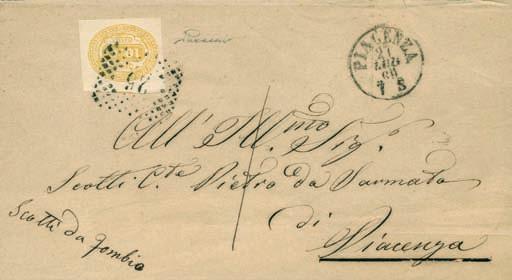 10
PIACENZA
21
LUG
66
7 S
All' Ill.mo Sig.
Scotti C.te Pietro da Sarmato
di
Piacenza
Scotti da Fombio